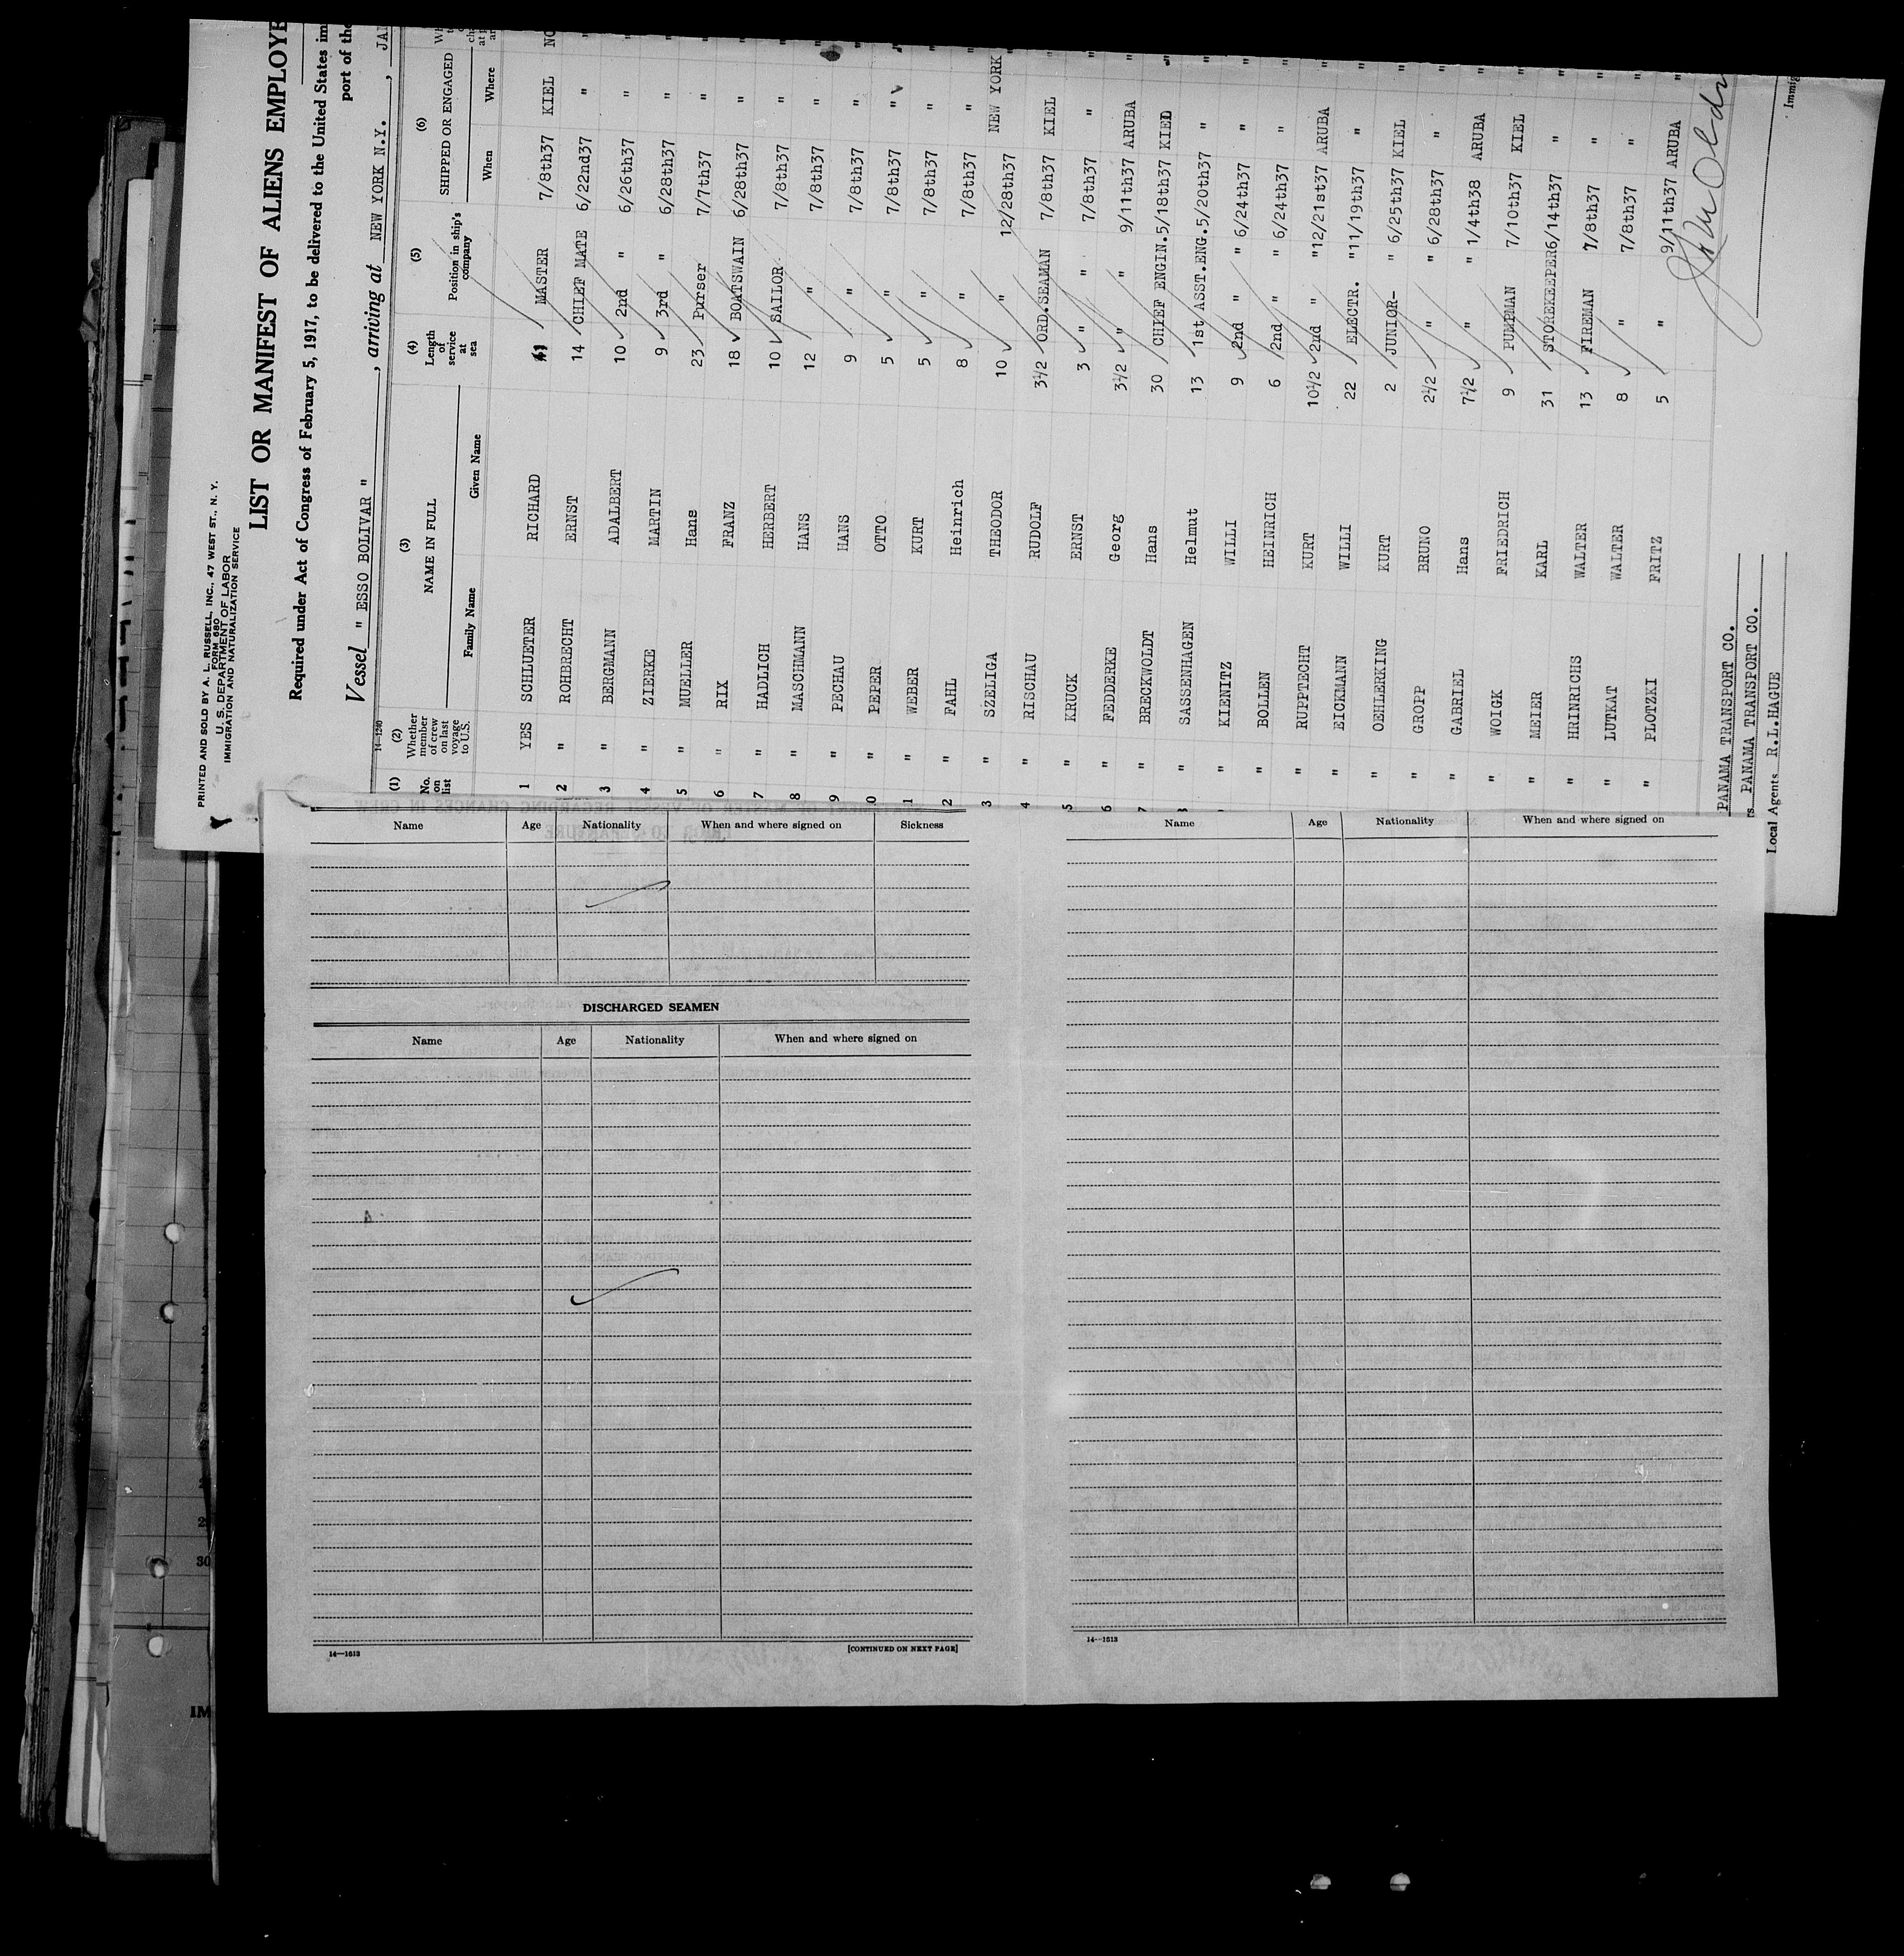 PRINTED AND SOLD BY A. L. RUSSELL, INC., 47 WEST ST., N. Y.
FORM 680
U. S. DEPARTMENT OF LABOR
IMMIGRATION AND NATURALIZATION SERVICE
LIST OR MANIFEST OF ALIENS EMPLOYE
Required under Act of Congress of February 5, 1917, to be delivered to the United States im
port of the
Vessel " ESSO BOLIVAR " , arriving at NEW YORK N.Y. , JA
14—1240
(1) (2) (3) (4) (5) (6)
No. on list Whether member of crew on last voyage to U.S. NAME IN FULL Length of service at sea Position in ship's company SHIPPED OR ENGAGED
Family Name Given Name When Where
1 YES SCHLUETER RICHARD MASTER 7/8th37 KIEL NO
2 " ROHBRECHT ERNST 14 CHIEF MATE 6/22nd37 " "
3 " BERGMANN ADALBERT 10 2nd " 6/26th37 " "
4 " ZIERKE MARTIN 9 3rd " 6/28th37 " "
5 " MUELLER Hans 23 Purser 7/7th37 " "
6 " RIX FRANZ 18 BOATSWAIN 6/28th37 " "
7 " HADLICH HERBERT 10 SAILOR 7/8th37 " "
8 " MASCHMANN HANS 12 " 7/8th37 " "
9 " PECHAU HANS 9 " 7/8th37 " "
0 " PEPER OTTO 5 " 7/8th37 " "
1 " WEBER KURT 5 " 7/8th37 " "
2 " FAHL Heinrich 8 " 7/8th37 " "
3 " SZELIGA THEODOR 10 " 12/28th37 NEW YORK "
4 " RISCHAU RUDOLF 3½ ORD.SEAMAN 7/8th37 KIEL "
5 " KRUCK ERNST 3 " 7/8th37 " "
6 " FEDDERKE Georg 3½ " 9/11th37 ARUBA "
7 " BRECKWOLDT Hans 30 CHIEF ENGIN. 5/18th37 KIEL "
" SASSENHAGEN Helmut 13 1st ASST.ENG. 5/20th37 " "
" KIENITZ WILLI 9 2nd " 6/24th37 " "
" BOLLEN HEINRICH 6 2nd " 6/24th37 " "
" RUPPTECHT KURT 10½ 2nd " "12/21st37 ARUBA "
" EICKMANN WILLI 22 ELECTR. "11/19th37 " "
" OEHLERKING KURT 2 JUNIOR- " 6/25th37 KIEL "
" GROPP BRUNO 2½ " " 6/28th37 " "
" GABRIEL Hans 7½ " " 1/4th38 ARUBA "
" WOIGK FRIEDRICH 9 PUMPMAN 7/10th37 KIEL "
" MEIER KARL 31 STOREKEEPER 6/14th37 " "
" HRINRICHS WALTER 13 FIREMAN 7/8th37 " "
" LUTKAT WALTER 8 " 7/8th37 " "
" PLOTZKI FRITZ 5 " 9/11th37 ARUBA "
PANAMA TRANSPORT CO.
rs PANAMA TRANSPORT CO.
Local Agents R.L.HAGUE
Immig
Name Age Nationality When and where signed on Sickness
DISCHARGED SEAMEN
Name Age Nationality When and where signed on
14—1613
[CONTINUED ON NEXT PAGE]
Name Age Nationality When and where signed on
14—1613
30
IM